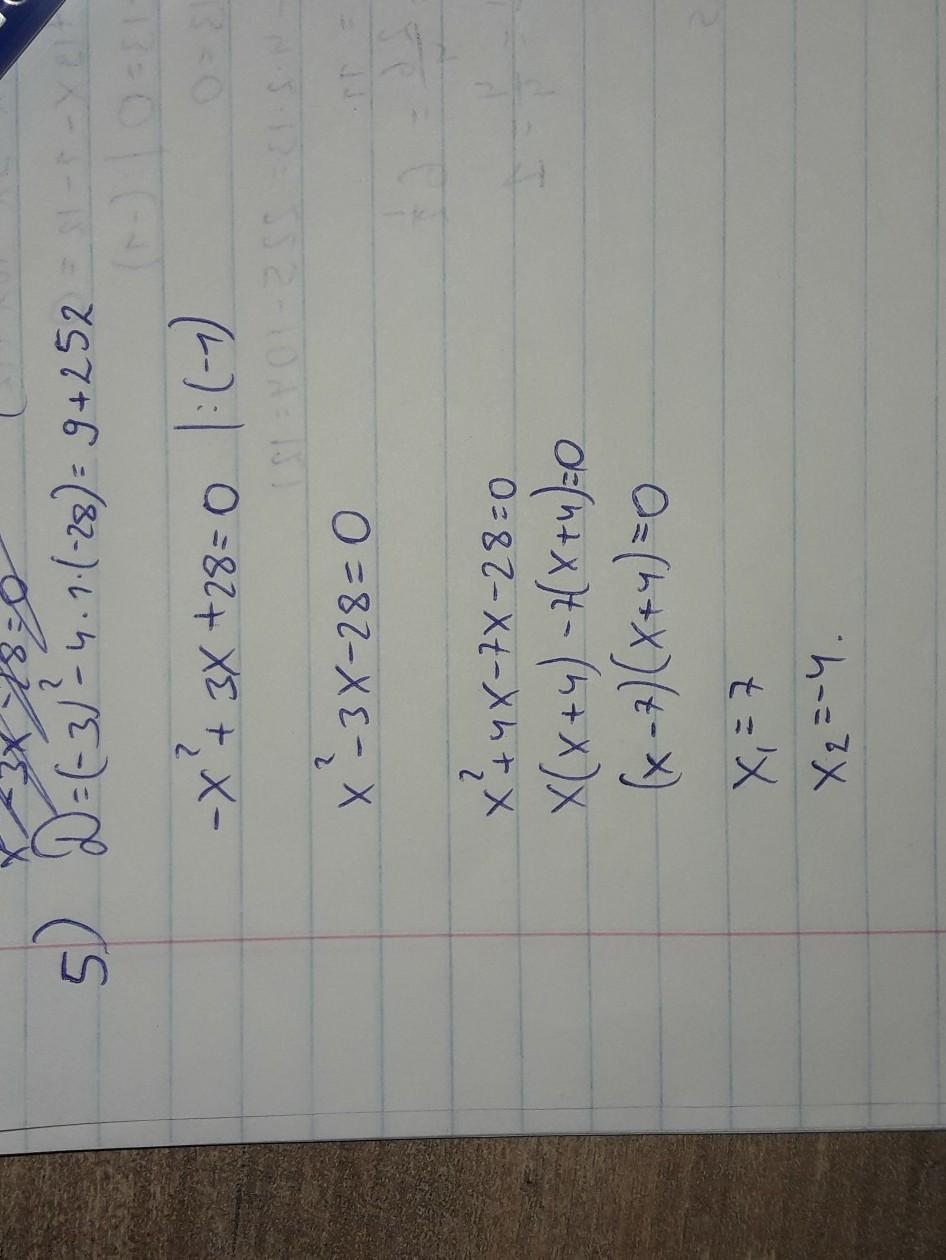 x² - 3x - 28 = 0
5) D = (-3)² - 4 · 1 · (-28) = 9 + 252
-x² + 3x + 28 = 0 | : (-1)
x² - 3x - 28 = 0
x² + 4x - 7x - 28 = 0
x(x + 4) - 7(x + 4) = 0
(x - 7)(x + 4) = 0
x₁ = 7
x₂ = -4.